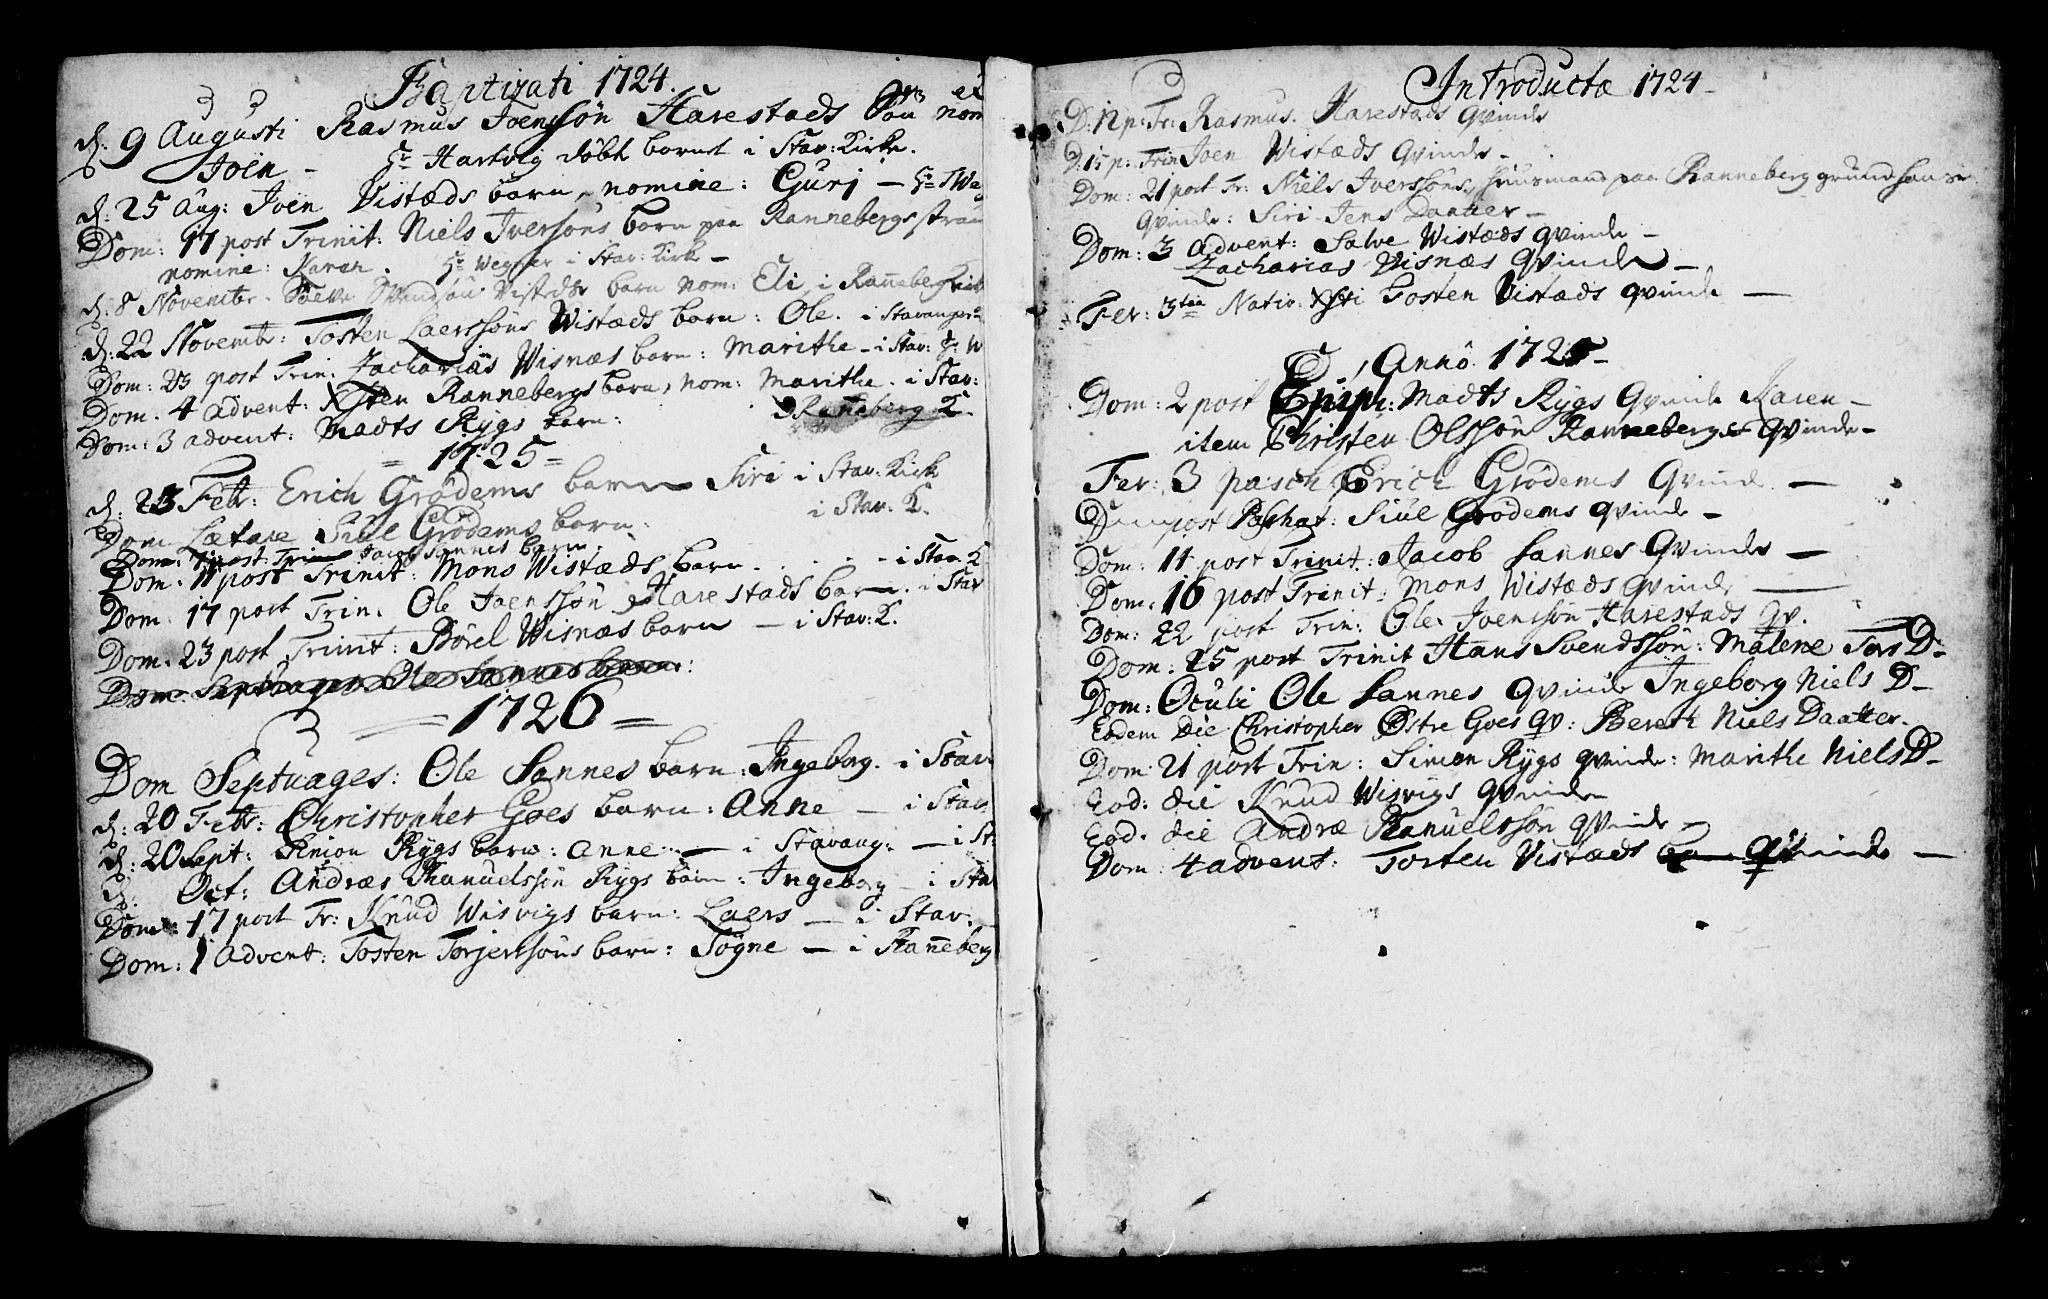 Baptizati 1724.
d. 9 Augusti Rasmus Joenssön Harestads nom
Joen - Hr Hartvig döbt barnet i Stav: Kirke.
d. 25 Aug: Joen Vistæds barn, nomine: Gurj - Hr We
Dom: 17 post Trinit: Niels Iversöns barn paa Rannebergs stran
nomine: Karen. Hr Wegner i Stav: Kirke -
d: 8 Novembr. Vistæds barn nom: Eli, i Ranneberg
d: 22 Novembr: Tosten Laerssöns Wistæds barn: Ole. i Stavanger
Dom: 23 post Trin: Zacharias Wisnæs barn: Marithe - i Stav: Hr W
Dom. 4 advent: Xsten Rannebergs barn, nom: Marithe. i Stav:
Dom: 3 advent: Madts Rygs barn: Ranneberg K.
= 1725 =
d. 23 Febr: Erich Grödems barn Siri i Stav: Kirk
Dom Lætare Siul Grödems barn: i Stav: K.
Dom: 7 post Trin Jacob Sannes barn
Dom. 11 post Trinit: Mons Wistæds barn. . . - i Stav: K
Dom: 17 post Trin. Ole Joenssön Harestads barn. i Stav
Dom. 23 post Trinit: Börel Wisnæs barn - i Stav: K.
Dom. Septuages. Ole Sannes barn:
= 1726 =
Dom Septuages: Ole Sannes barn: Ingeborg. i Stav.
d: 20 Febr: Christopher Goes barn: Anne - i Stav.
d: 20 Sept: Simon Rygs barn: Anne - i Stavang. - i St:
d. Oct: Andræs Rygs barn: Ingeborg - i Stav
Dom: 17 post Tr: Knud Wisvigs barn: Laers - i Stav.
Dom: 1 Advent: Tosten Torjerssöns barn: Søgne - i Ranneberg
Introductæ 1724
D: 12 p: Tr: Rasmus Harestads Qvinde
D. 15 p: Trin Joen Wistæds Qvinde -
Dom: 21 post Tr: Niels Iverssöns, huusmand paa Ranneberg grund hans
Qvinde: Siri Jens Daatter -
Dom: 3 Advent: Salve Wistæds Qvinde -
Zacharias Visnæs Qvinde -
Fer: 3tia Nativ: Xsti Tosten Vistæds Qvinde -
Anno 1725
Dom: 2 post Epiph: Madts Rygs Qvinde Karen -
item Christen Olssön Rannebergs Qvinde -
Fer: 3 pasch Erich Grödems Qvinde -
Dom post Paschat: Siul Grödems Qvinde -
Dom: 11 post Trinit: Jacob Sannes Qvinde -
Dom. 16 post Trinit: Mons Wistæds Qvinde
Dom: 22 post Trin: Ole Joenssön Harestads Qv.
Dom: 25 post Trinit Hans Svendssön: Malene Tors D-
Dom: Oculi Ole Sannes Qvinde Ingeborg Niels D-
Eodem die Christopher Østre Goes Qv: Bereth Niels Daatter.
Dom 21 post Trin: Simon Rygs Qvinde: Marithe Niels D-
Eod: die Knud Wisvigs Qvinde
Eod. die Andræ Qvinde -
Dom: 4 advent: Torsten Vistæds Qvinde -